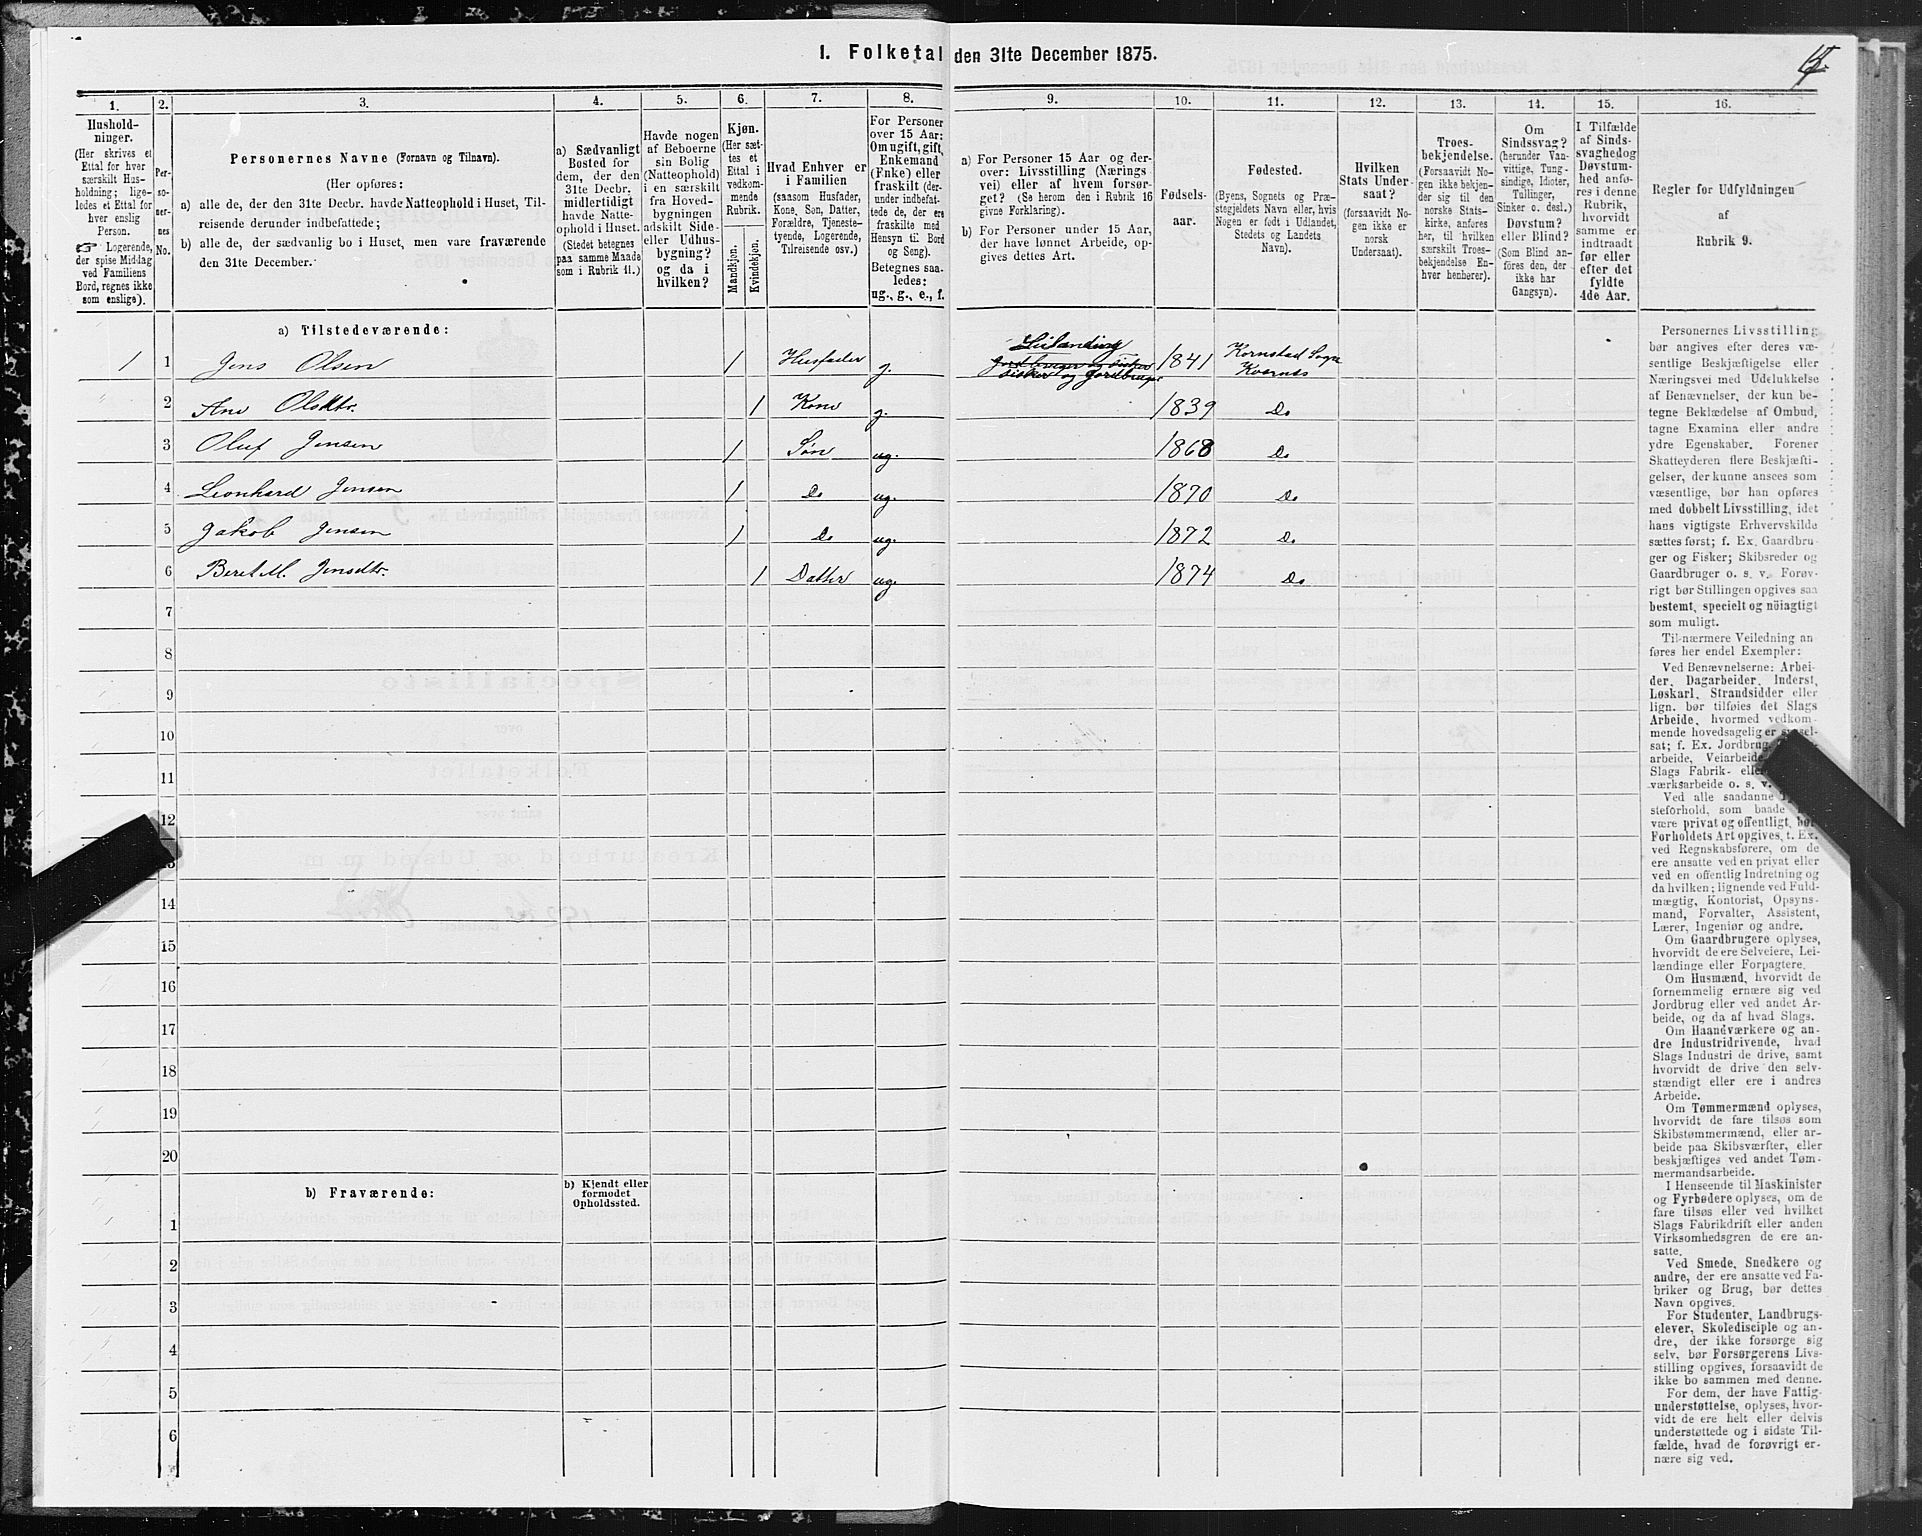 I. Folketal den 31te December 1875.
1. 2. 3. 4. 5. 6. 7. 8. 9. 10. 11. 12. 13. 14. 15. 16.
Hushold-
ninger.
(Her skrives et
Ettal for hver
særskilt Hus-
holdning; lige-
ledes et Ettal for
hver enslig
Person.
☞ Logerende,
der spise Middag
ved Familiens
Bord, regnes ikke
som enslige).
Per-
so-
ner-
nes
No.
Personernes Navne (Fornavn og Tilnavn).
(Her opføres:
a) alle de, der den 31te Decbr. havde Natteophold i Huset, Til-
reisende derunder indbefattede;
b) alle de, der sædvanlig bo i Huset, men vare fraværende
den 31te December.
a) Sædvanligt
Bosted for
dem, der den
31te Decbr.
midlertidigt
havde Natte-
ophold i Huset.
(Stedet betegnes
paa samme Maade
som i Rubrik 11.)
Havde nogen
af Beboerne
sin Bolig
(Natteophold)
i en særskilt
fra Hoved-
bygningen
adskilt Side-
eller Udhus-
bygning?
og da i
hvilken?
Kjøn.
(Her sæt-
tes et
Ettal i
vedkom-
mende
Rubrik.
Mandkjøn.
Kvindekjøn.
Hvad Enhver er
i Familien
(saasom Husfader,
Kone, Søn, Datter,
Forældre, Tjeneste-
tyende, Logerende,
Tilreisende osv.)
For Personer
over 15 Aar:
Om ugift, gift,
Enkemand
(Enke) eller
fraskilt (der-
under indbefat-
tede de, der ere
fraskilte med
Hensyn til Bord
og Seng).
Betegnes saa-
ledes:
ug., g., e., f.
a) For Personer 15 Aar og der-
over: Livsstilling (Nærings
vei) eller af hvem forsør-
get? (Se herom den i Rubrik 16
givne Forklaring).
b) For Personer under 15 Aar,
der have lønnet Arbeide, op-
gives dettes Art.
Fødsels-
aar.
Fødested.
(Byens, Sognets og Præ-
stegjeldets Navn eller, hvis
Nogen er født i Udlandet,
Stedets og Landets
Navn).
Hvilken
Stats Under-
saat?
(forsaavidt No-
gen ikke er
norsk
Undersaat).
Troes-
bekjendelse.
(Forsaavidt No-
gen ikke bekjen-
der sig til den
norske Stats-
kirke, anføres
her, til hvilken
særskilt Troes-
bekjendelse En-
hver henhører).
Om
Sindssvag?
(herunder Van-
vittige, Tung-
sindige, Idioter,
Tullinger,
Sinker o. desl.)
Døvstum?
eller Blind?
(Som Blind an-
føres den, der
ikke har
Gangsyn).
I Tilfælde
af Sinds-
svaghed og
Døvstum-
hed anfø-
res i denne
Rubrik,
hvorvidt
samme er
indtraadt
før eller
efter det
fyldte
4de Aar.
Regler for Udfyldningen
af
Rubrik 9.
a) Tilstedeværende:
1 1 Jens Olsen 1 Husfader g. Leilending 1841 Kornstad Sogn
Gordbruger og Fisker
Fisker og Gordbruger Kvernes
2 Ane Olsdtr. 1 Kone g. 1839 Do
3 Oluf Jensen 1 Søn ug. 1868 Do
4 Leonhard Jensen 1 Do ug. 1870 Do
5 Jakob Jensen 1 Do ug. 1872 Do
6 Beret M. Jensdtr. 1 Datter ug. 1874 Do
7
8
9
10
11
12
14
15
16
17
18
19
20
b) Fraværende:
b) Kjendt eller
formodet
Opholdssted.
1
2
3
4
5
6
Personernes Livsstilling
bør angives efter deres væ-
sentlige Beskjæftigelse eller
Næringsvei med Udelukkelse
af Benævnelser, der kun be-
tegne Beklædelse af Ombud,
tagne Examina eller andre
ydre Egenskaber. Forener
Skatteyderen flere Beskjæfti-
gelser, der kunne ansees som
væsentlige, bør han opføres
med dobbelt Livsstilling, idet
hans vigtigste Erhvervskilde
sættes først; f. Ex. Gaardbru-
ger og Fisker; Skibsreder og
Gaardbruger o. s. v. Forøv-
rigt bør Stillingen opgives saa
bestemt, specielt og nöiagtigt
som muligt.
Til nærmere Veiledning an
føres her endel Exempler:
Ved Benævnelserne: Arbei-
der, Dagarbeider, Inderst,
Løskarl, Strandsidder eller
lign. bør tilføies det Slags
Arbeide, hvormed vedkom-
mende hovedsagelig er syssel-
sat; f. Ex. Jordbrug,
arbeide, Veiarbeide
Slags Fabrik- eller
værksarbeide o. s. v.
Ved alle saadanne
steforhold, som baade
være privat og offentligt, bør
Forholdets Art opgives, t. Ex.
ved Regnskabsførere, om de
ere ansatte ved en privat eller
ved en offentlig Indretning og
da hvilken; lignende ved Fuld-
mægtig, Kontorist, Opsyns-
mand, Forvalter, Assistent,
Lærer, Ingeniør og andre.
Om Gaardbrugere oplyses,
hvorvidt de ere Selveiere, Lei-
lændinge eller Forpagtere.
Om Husmænd, hvorvidt de
fornemmelig ernære sig ved
Jordbrug eller ved andet Ar-
beide, og da af hvad Slags.
Om Haandværkere og an-
dre Industridrivende, hvad
Slags Industri de drive, samt
hvorvidt de drive den selv-
stændigt eller ere i andres
Arbeide.
Om Tømmermænd oplyses,
hvorvidt de fare tilsøs som
Skibstømmermænd, eller ar-
beide paa Skibsværfter, eller
beskjæftiges ved andet Tøm-
mermandsarbeide.
I Henseende til Maskinister
og Fyrbødere oplyses, om de
fare tilsøs eller ved hvilket
Slags Fabrikdrift eller anden
Virksomhedsgren de ere an-
satte.
Ved Smede, Snedkere og
andre, der ere ansatte ved Fa-
briker og Brug, bør dettes
Navn opgives.
For Studenter, Landbrugs-
elever, Skoledisciple og an-
dre, der ikke forsørge sig
selv, bør Forsørgerens Livs-
stilling opgives, forsaavidt de
ikke bo sammen med denne.
For dem, der have Fattig-
understøttelse, oplyses, hvor-
vidt de ere helt eller delvis
understøttede og i sidste Til-
fælde, hvad de forøvrigt er-
nære sig ved.